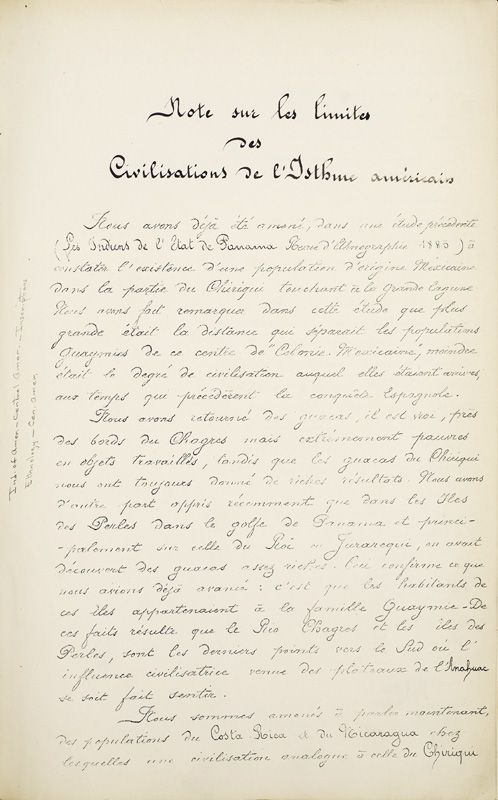 Note sur les limites
des
Civilisations de l'Isthme américain
Nous avons déjà été amené, dans une étude précédente
(Les Indiens de l'Etat de Panama Revue d'Ethnographie 1885) à
constater l'existence d'une population d'origine Mexicaine
dans la partie du Chiriqui touchant à la grande lagune
Nous avons fait remarquer dans cette étude que plus
grande était la distance qui séparait les populations
Guaymies de ce centre de "Colonie Mexicaine", moindre
était le degré de civilisation auquel elles étaient arrivées,
aux temps qui précédèrent la conquête Espagnole.
Nous avons retourné des guacas, il est vrai, près
des bords du Chagres mais extrêmement pauvres
en objets travaillés, tandis que les guacas du Chiriqui
nous ont toujours donné de riches résultats. Nous avons
d'autre part appris récemment que dans les Iles
des Perles dans le golfe de Panama et princi-
-palement sur celle du Roi ou, on avait
découvert des guacas assez riches. Ceci confirme ce que
nous avions déjà avancé : c'est que les habitants de
ces îles appartenaient à la famille Guaymie - De
ces faits résulte que le Rio Chagres et les îles des
Perles, sont les derniers points vers le Sud où l'
influence civilisatrice venue des plateaux de l'Anahuac
se soit fait sentir.
Nous sommes amenés à parler maintenant,
des populations du Costa Rica et du Nicaragua chez
lesquelles une civilisation analogue à celle du Chiriqui
Ind. of Amer. - Central Amer. -
Ethnology - Cen. Amer.